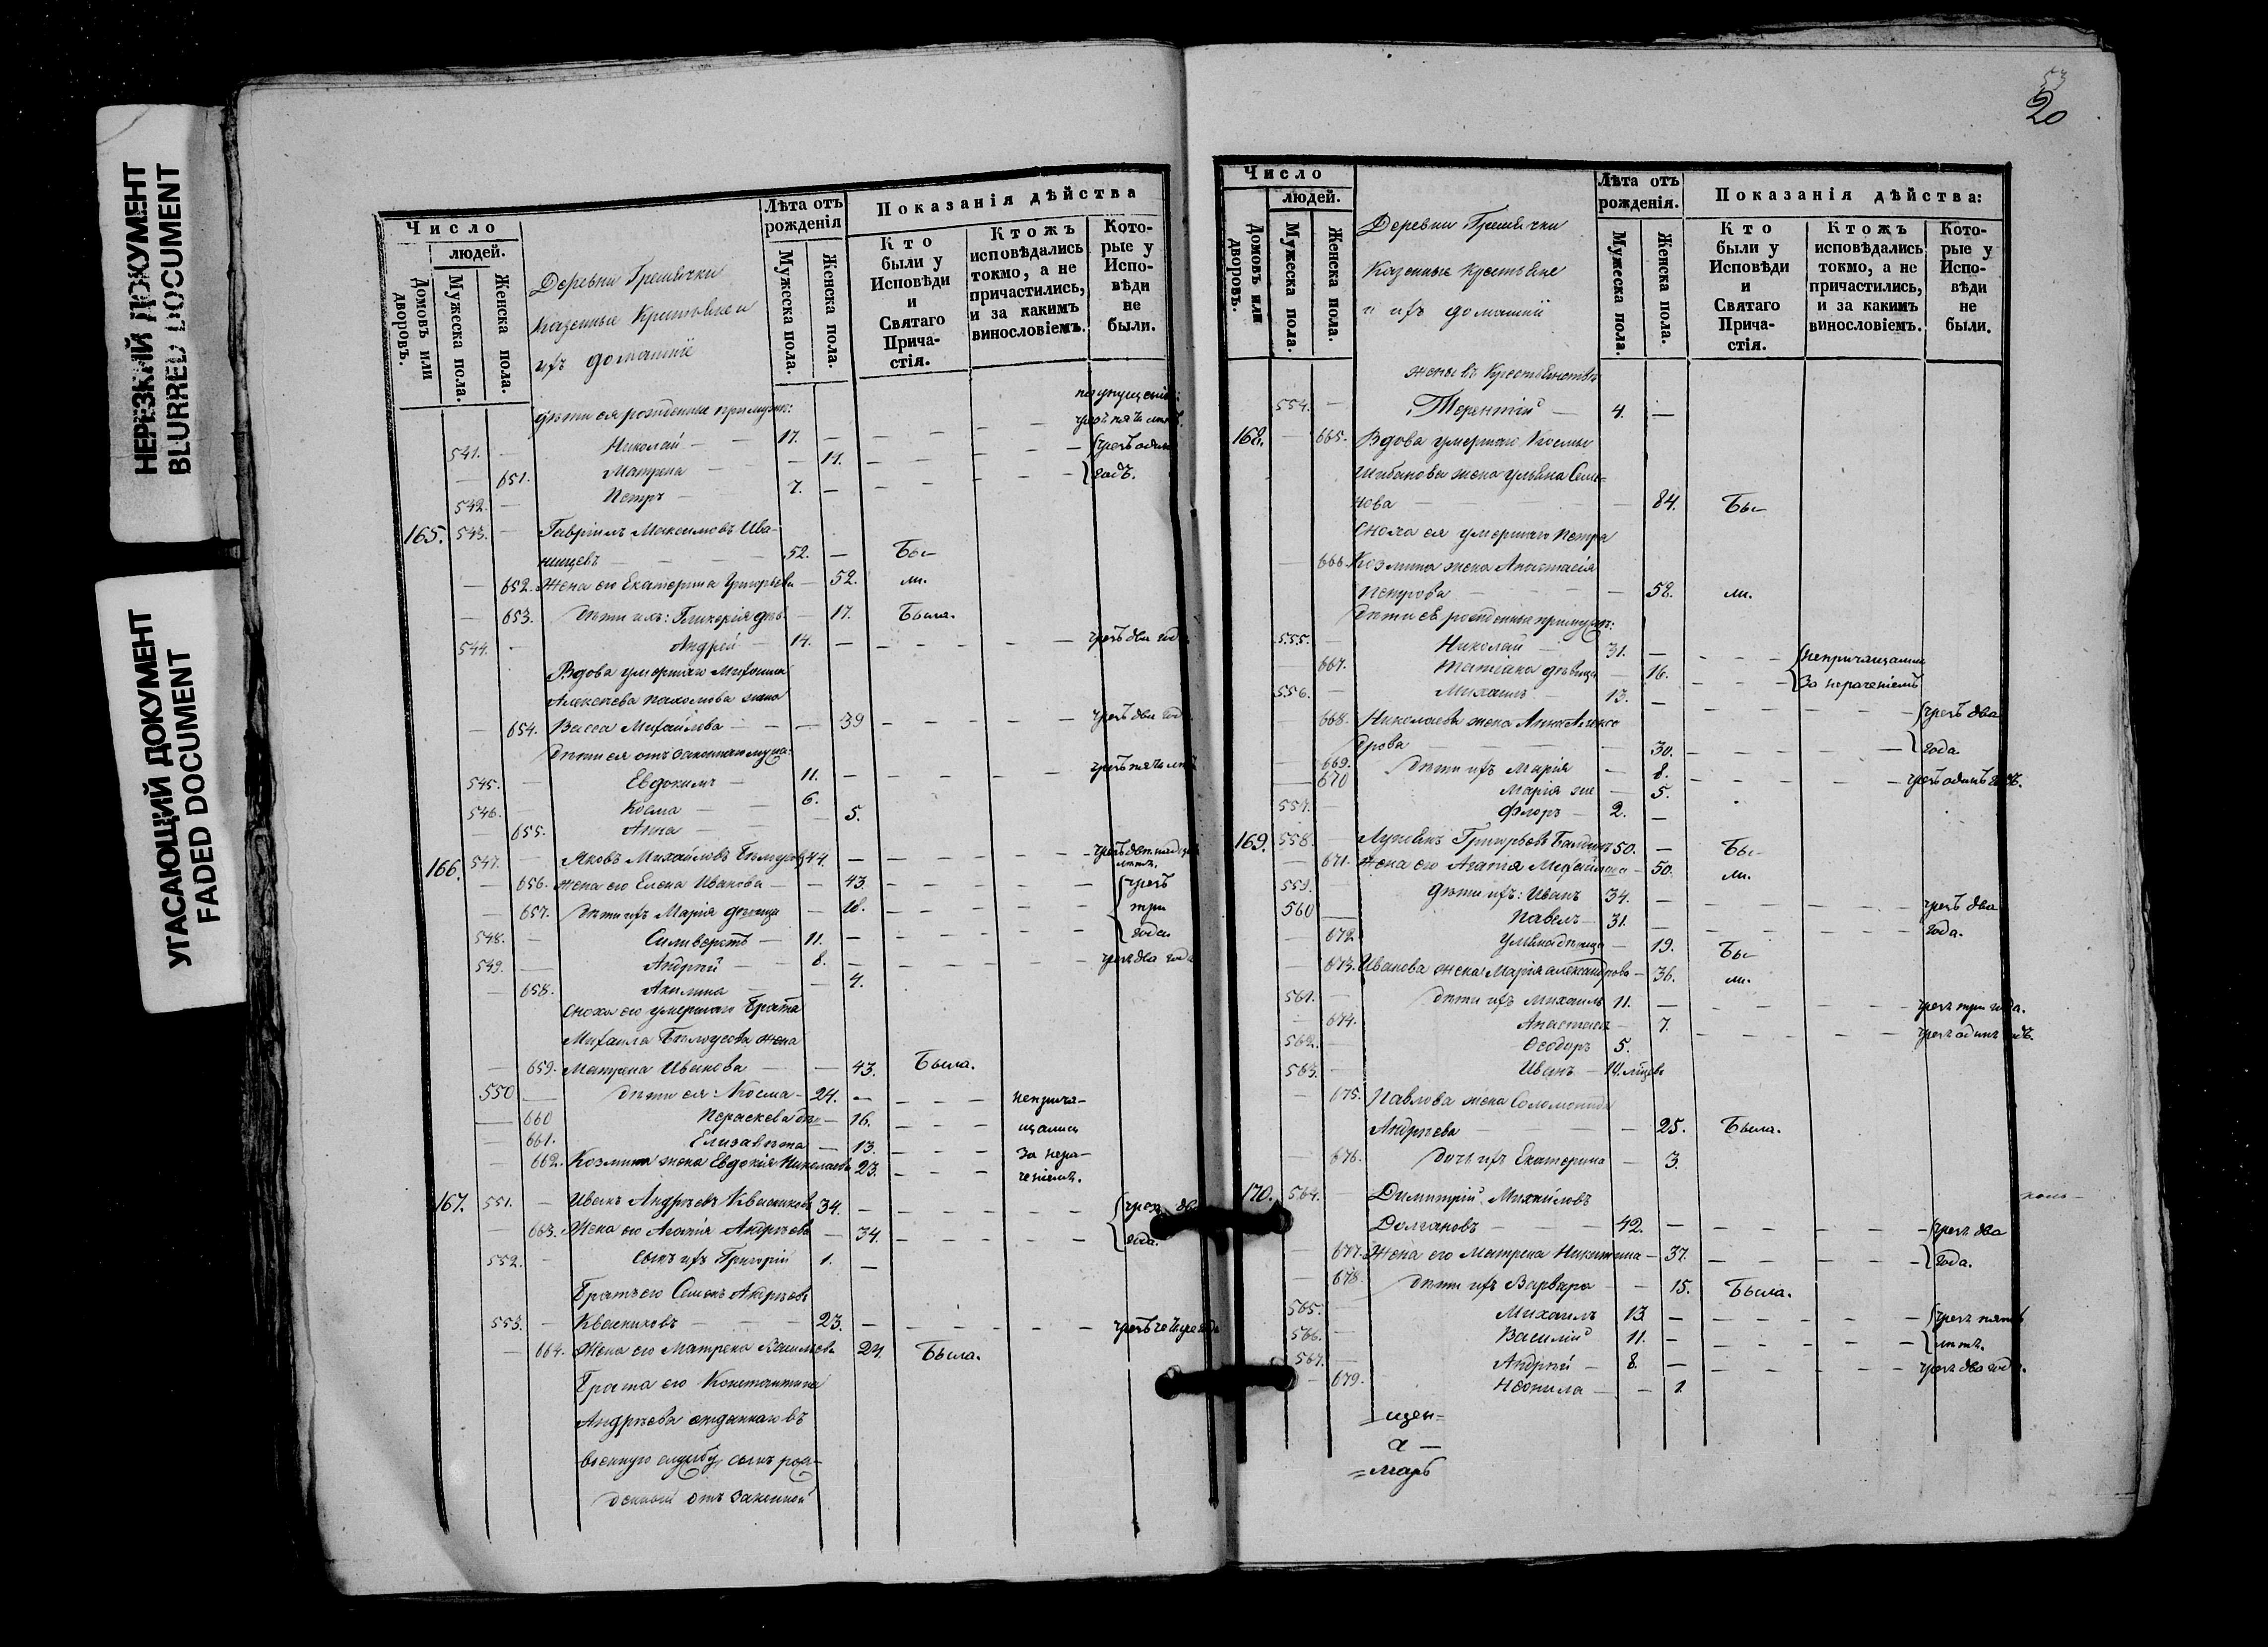 НЕРЕЗКИЙ ДОКУМЕНТ
BLURRED DOCUMENT
УГАСАЮЩИЙ ДОКУМЕНТ
FADED DOCUMENT
Число
людей.
Домовъ или дворовъ.
Мужеска пола.
Женска пола.
Деревни Гремячки
Казенные Крестьяне и
ихъ домашніе
Лѣта отъ рожденія
Мужеска пола.
Женска пола.
Показанія дѣйства
Кто были у Исповѣди и Святаго Прича-стія.
Ктожъ исповѣдались токмо, а не причастились, и за какимъ винословіемъ.
Кото-рые у Испо-вѣди не были.
дѣти ея рожденные при мужѣ: по упущенію:
541. — Николай — 17. —
— 651. Матрена — 11. чрезъ одинъ
542. — Петръ — 7. — годъ.
165. 543. — Гавріилъ Максимовъ Ива-
нищевъ — 52. — Бы-
— 652. Жена его Екатерина Григорьева — 52. ли.
— 653. Дѣти ихъ: Гликерія дѣв. — 17. Была.
544. — Андрей — 14. — чрезъ два года
Вдова умершаго
Алексѣева Пахомова жена
— 654. Васса Михайлова — 39 чрезъ два года
Дѣти ея отъ законнаго мужа:
545. — Евдокимъ — 11. — чрезъ пять лѣтъ
546. Косма — 6.
— 655. Анна — 5.
166. 547. — Яковъ Михайловъ Бѣлоусовъ 44. —
лѣтъ.
— 656. Жена его Елена Иванова — 43. чрезъ
— 657. Дѣти ихъ Марія дѣвица — 18. три
548. — Силиверстъ — 11. — года.
549. — Андрей — 8. — чрезъ два года
— 658. Акилина — 4.
Сноха его умершаго Брата
Михаила Бѣлоусова жена
— 659. Матрена Иванова — 43. Была.
550 — Дѣти ея: Косма — 24. — неприча-
— 660 Параскева дѣв. — 16. щались
— 661. Елизавета — 13. за нера-
— 662. Козмина жена Евдокія Николаева 23. ченіемъ.
167. 551. — Иванъ Андреевъ Квасниковъ 34. — чрезъ два
— 663. Жена его Агафія Андреева — 34. года.
552. — Сынъ ихъ Григорій 1. —
Братъ его Семенъ Андреевъ
553. — Квасниковъ — 23. — чрезъ четыре года
— 664. Жена его Матрена Васильева 24. Была.
Брата его Константина
Андреева отданнаго въ
военную службу, сынъ рож-
денный отъ законной
53
20
Число
людей.
Домовъ или дворовъ.
Мужеска пола.
Женска пола.
Деревни Гремячки
Казенные Крестьяне
и ихъ домашніе
Лѣта отъ рожденія.
Мужеска пола.
Женска пола.
Показанія дѣйства:
Кто были у Исповѣди и Святаго Прича-стія.
Ктожъ исповѣдались токмо, а не причастились, и за какимъ винословіемъ.
Кото-рые у Испо-вѣди не были.
жены въ Крестьянствѣ
554. — Терентій — 4. —
168. — 665. Вдова умершаго Космы
Шибанова жена Ульяна Семе-
нова — 84. Бы-
Сноха ея умершаго Петра
— 666. Козмина жена Анастасія
Петрова — 58. ли.
Дѣти ея рожденные при мужѣ:
555. — Николай 31. — непричащались
— 667. Татіана дѣвица — 16. за нераченіемъ
556. — Михаилъ — 13. —
— 668. Николаева жена Анна Алексан чрезъ два
дрова — 30. года.
— 669. Дѣти ихъ Марія — 8. чрезъ одинъ годъ.
— 670 Марія же — 5.
557. — Флоръ — 2. —
169. 558. Лукіанъ Григорьевъ 50. — Бы-
— 671. Жена его Агафія Михайлова — 50. ли.
559. Дѣти ихъ: Иванъ 34. — чрезъ два
560 — Павелъ — 31. — года.
— 672 Ульяна дѣвица — 19. Бы-
— 673. Иванова жена Марія Александрова — 36. ли.
561. — Дѣти ихъ Михаилъ 11. — чрезъ три года.
— 674. Анастасія — 7. чрезъ одинъ годъ.
562. — Ѳеодоръ 5.
563. — Иванъ —
— 675. Павлова жена Соломонида
Андреева — 25. Была.
— 676. Дочь ихъ Екатерина — 3.
170. 564. — Димитрій Михайловъ
Долгановъ — 42. — чрезъ два
— 677. Жена его Матрена Никитина — 37. года.
— 678. Дѣти ихъ Варвара — 15. Была.
565. — Михаилъ 13. — чрезъ пять
566. — Василій 11. — лѣтъ.
567. — Андрей — 8. — чрезъ два года.
— 679. Неонила — 1.